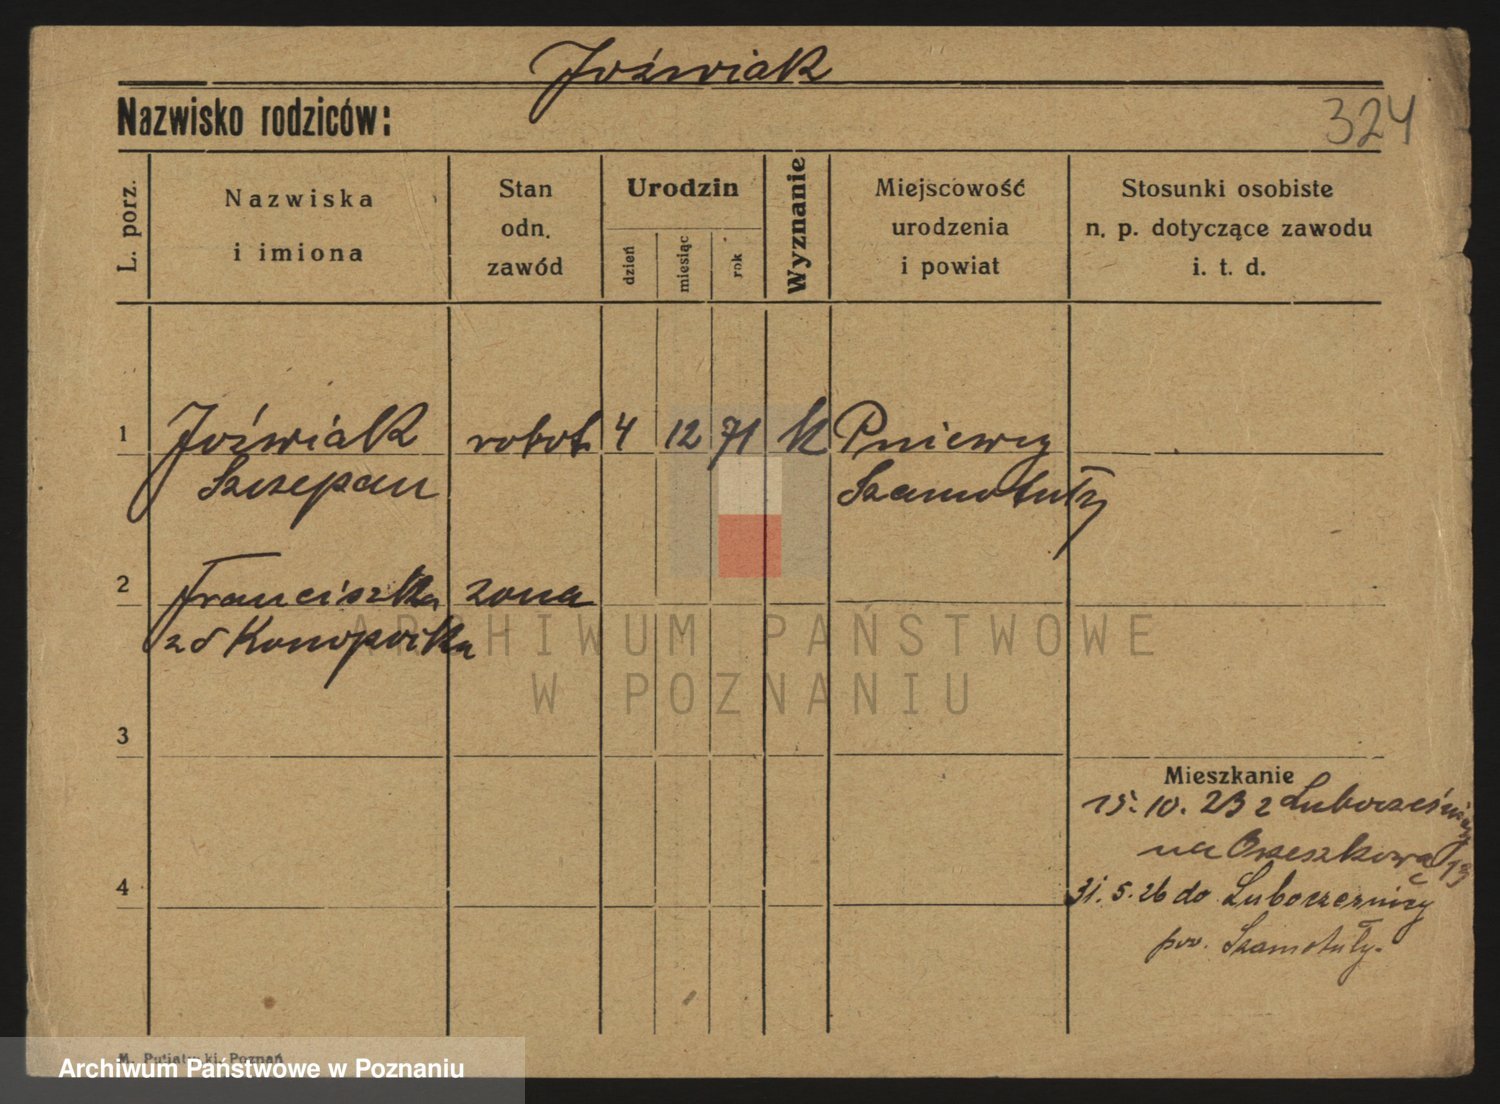 Joźwiak
Nazwisko rodziców:
324
L. porz.
Nazwiska
i imiona
Stan
odn.
zawód
Urodzin
dzień
miesiąc
rok
Wyznanie
Miejscowość
urodzenia
i powiat
Stosunki osobiste
n. p. dotyczące zawodu
i. t. d.
1 Joźwiak robot. 4 12 71 k Pniewy
Szczepan Szamotuły
2 Franciszka zona
zd Konopička
ARCHIWUM PAŃSTWOWE
W POZNANIU
3
Mieszkanie
15. 10. 23 z
na Orzeszkową 13
4
31. 5. 26 do
pow. Szamotuły.
M. Putiatycki, Poznań
Archiwum Państwowe w Poznaniu